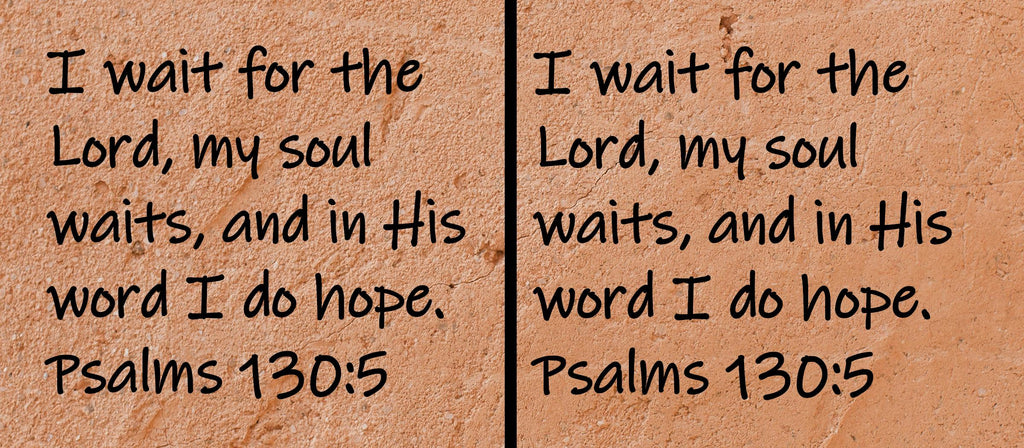 I wait for the
Lord, my soul
waits, and in His
word I do hope.
Psalms 130:5
I wait for the
Lord, my soul
waits, and in His
word I do hope.
Psalms 130:5